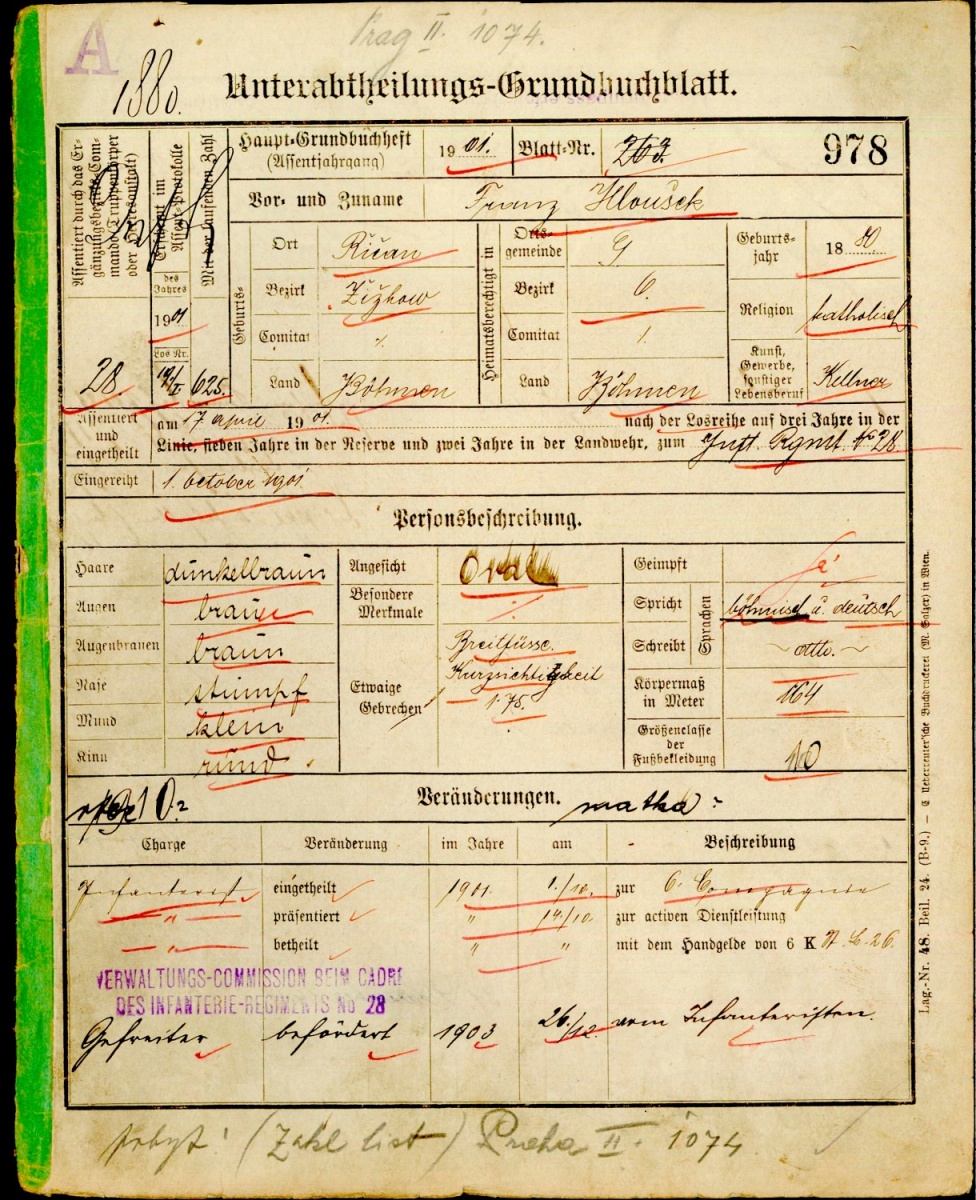 A
Prag II. 1074.
1880.
Unterabtheilungs-Grundbuchblatt.
Assentiert durch das Ergänzungsbezirks-Commando (Truppenkörper oder Heeresanstalt)
28
Erscheint im Assent-Protokolle
des Jahres
1901
Los Nr.
Mit der laufenden Zahl
625.
Haupt-Grundbuchheft
(Assentjahrgang)
1901.
Blatt-Nr.
263.
978
Vor- und Zuname
Franz Hloušek
Geburts-
Ort
Ričan
Bezirk
Žižkow
Comitat
Land
Böhmen
Heimatsberechtigt in
Ortsgemeinde
Bezirk
Comitat
Land
Böhmen
Geburtsjahr
1880
Religion
katholisch
Kunst, Gewerbe, sonstiger Lebensberuf
Kellner
Assentiert und eingetheilt
am 17 april 1901. nach der Losreihe auf drei Jahre in der
Linie, sieben Jahre in der Reserve und zwei Jahre in der Landwehr, zum Inft. Rgmt. No 28.
Eingereiht
1. October 1901
Personsbeschreibung.
Haare
dunkelbraun
Augen
braun
Augenbrauen
braun
Nase
stumpf
Mund
klein
Kinn
rund.
Angesicht
Oval
Besondere Merkmale
Etwaige Gebrechen
Breitfüsse.
Kurzsichtigkeit
1·75.
Geimpft
ja
Sprachen
Spricht
böhmisch u. deutsch
Schreibt
~ dtto. ~
Körpermaß in Meter
164
Größenclasse der Fußbekleidung
10
Veränderungen.
matka:
Charge
Veränderung
im Jahre
am
Beschreibung
Infanterist
eingetheilt
1901.
1./10.
zur 6. Compagnie
"
präsentiert
"
14/10.
zur activen Dienstleistung
"
betheilt
"
"
mit dem Handgelde von 6 K
VERWALTUNGS-COMMISSION BEIM CADRE
DES INFANTERIE-REGIMENTS No 28
Gefreiter
befördert
1903
26./12.
vom Infanteristen.
pobyt: (Zahl list) Praha II. 1074
Lag.-Nr. 48. Beil. 24. (B-9.) — C. Ueberreuter'sche Buchdruckerei (M. Salzer) in Wien.